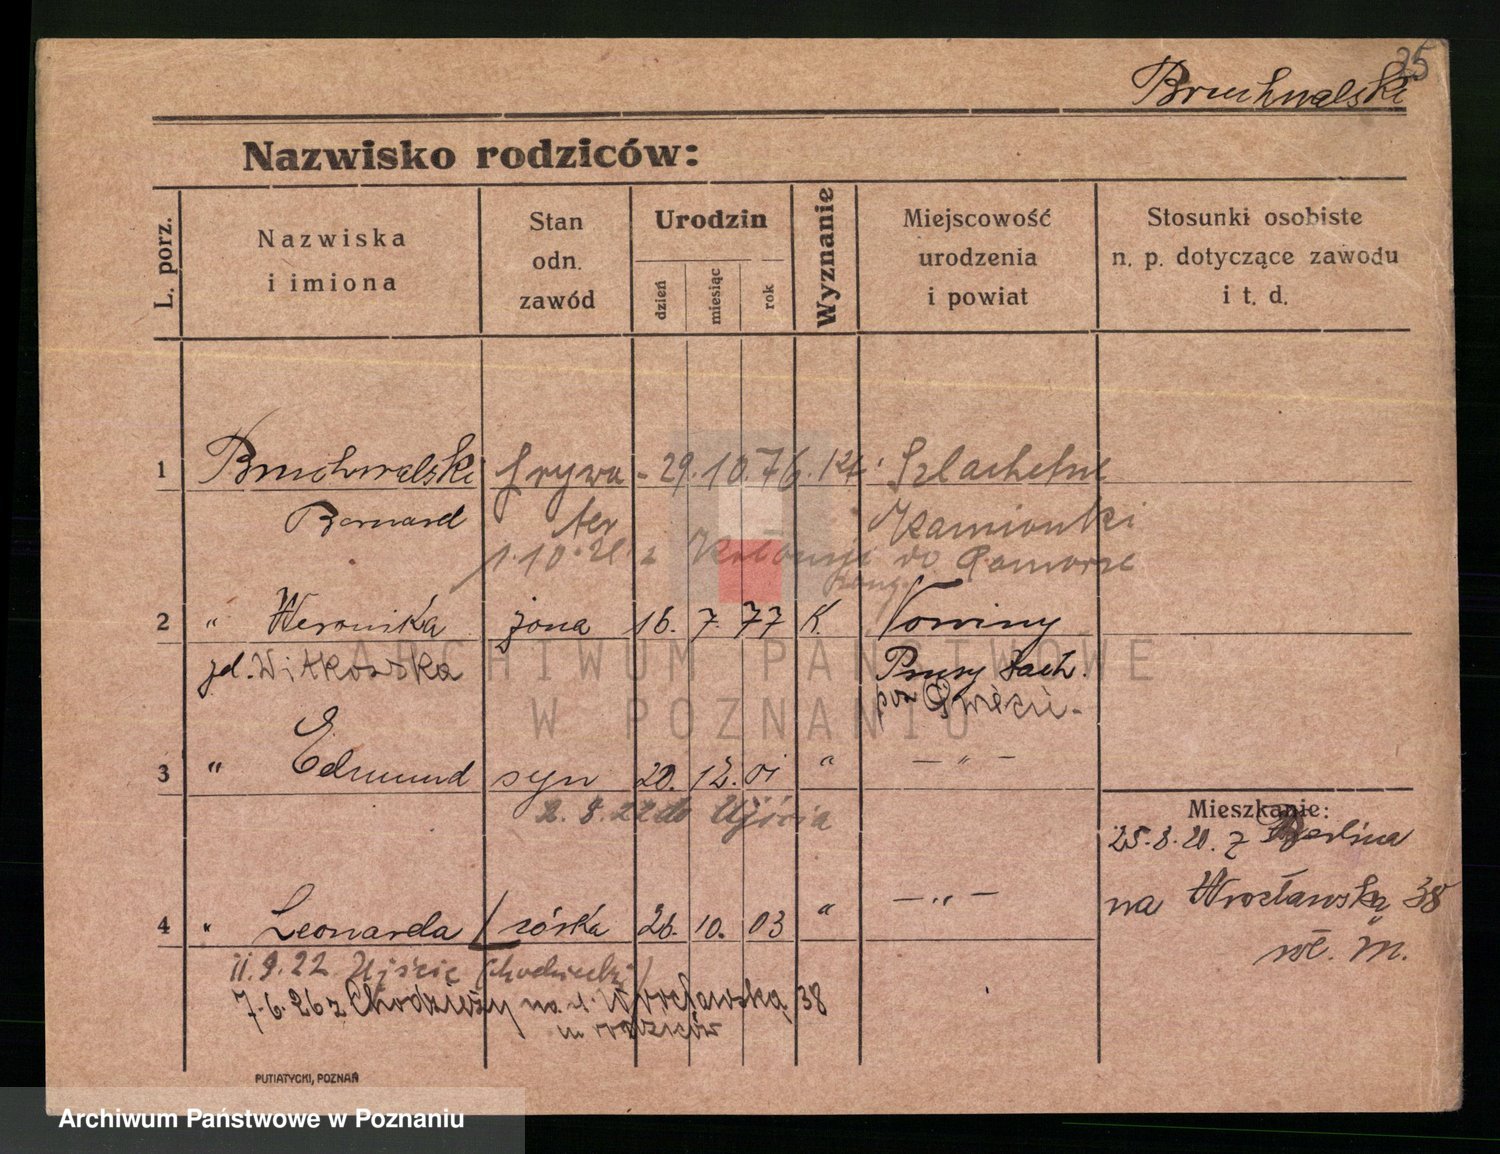 25
Bruchwalski
Nazwisko rodziców:
L. porz.
Nazwiska
i imiona
Stan
odn.
zawód
Urodzin
dzień
miesiąc
rok
Wyznanie
Miejscowość
urodzenia
i powiat
Stosunki osobiste
n. p. dotyczące zawodu
i t. d.
1 Bruchwalski fryzu- 29. 10. 76. kt. Szlachetne
Bernard jer Kamionki
1.10.21 z do Pomorze
2 " Weronika żona 16. 7. 77 K. Nowiny
zd. Witkowska Prusy Zach.
pow Świecie -
3 " Edmund syn 20. 12. 01 " — " —
2. 8. 22 do Ujścia
Mieszkanie:
25.8.20. z Berlina
na Wrocławską 38
wł. m.
4 " Leonarda / córka 26. 10. 03 " — " —
11.9.22 Ujście
7.6.26 z Chodzieży na ul. Wrocławską 38
u rodziców
PUTIATYCKI, POZNAŃ
ARCHIWUM PAŃSTWOWE
W POZNANIU
Archiwum Państwowe w Poznaniu